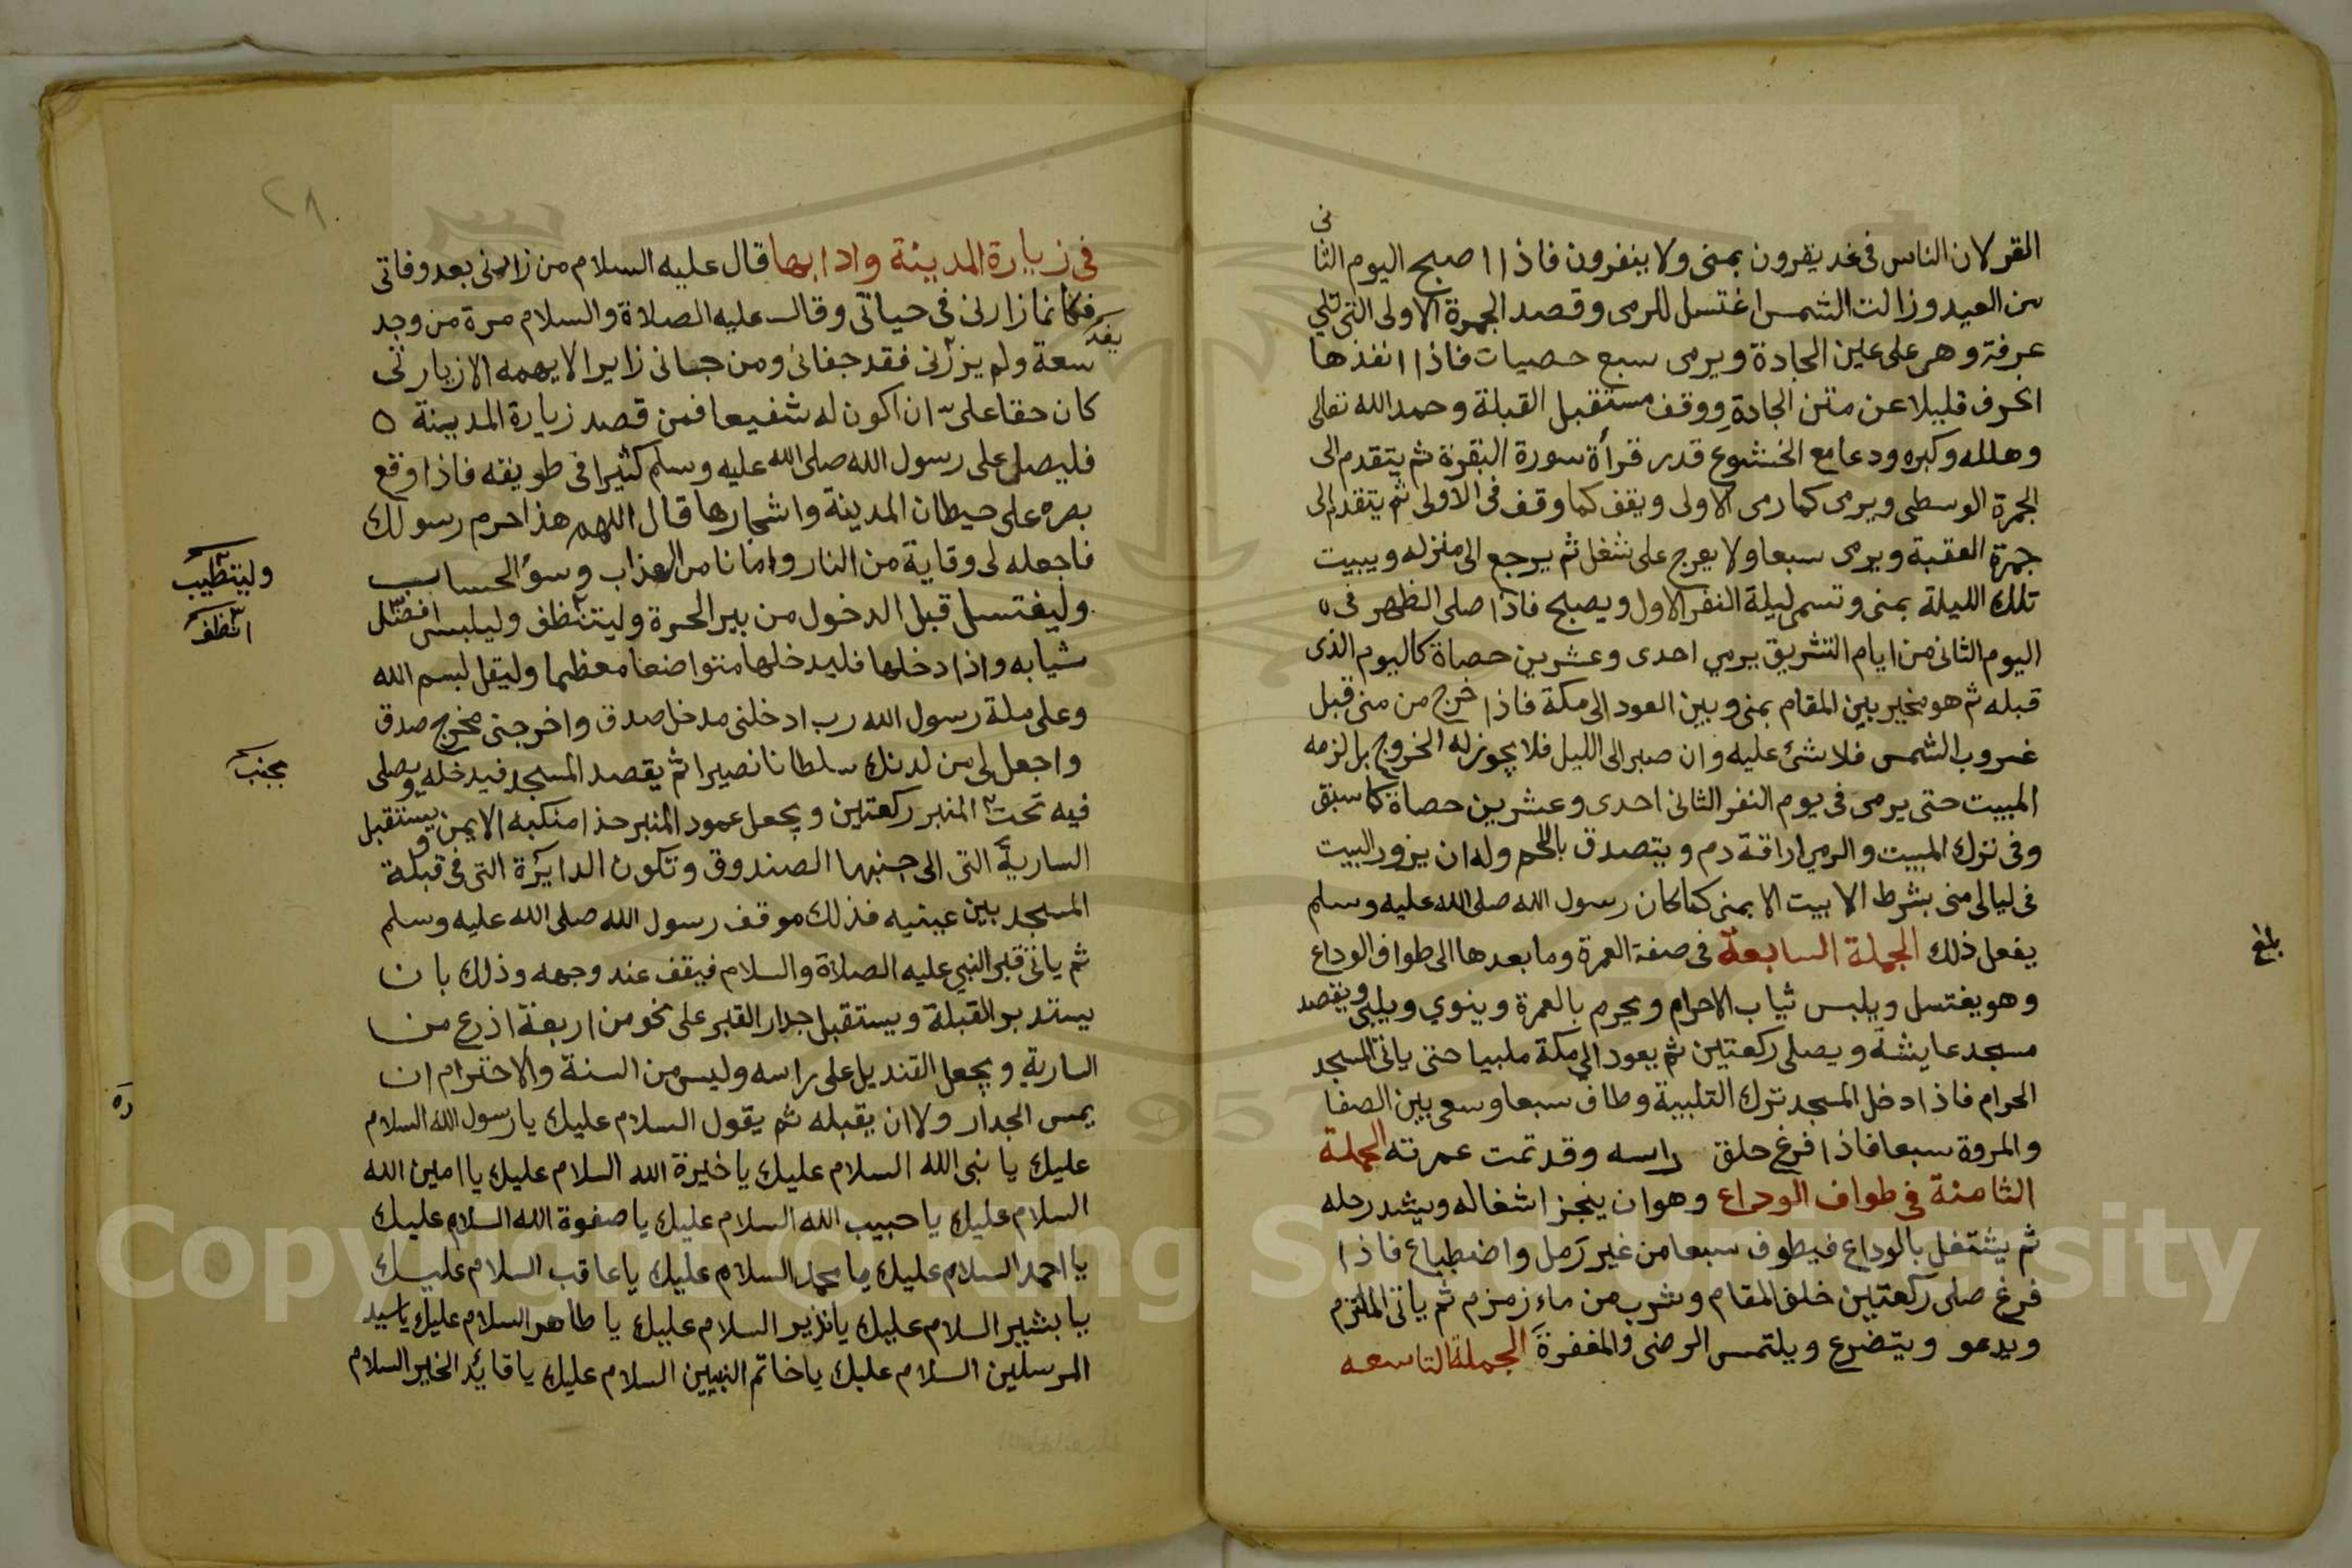 القر لان الناس في غد يقرون بمنى ولا ينفرون فاذا اصبح اليوم الثانى
من العيد وزالت الشمس اغتسل للرمى وقصد الجمرة الاولى التى تلي
عرفة وهى على عين الجادة ويرمى سبع حصيات فاذا انفذها
انحرف قليلا عن متن الجادة ووقف مستقبل القبلة وحمد الله تعالى
وهلله وكبره ودعا مع الخشوع قدر قرأة سورة البقرة ثم يتقدم الى
الجمرة الوسطى ويرمى كما رمى الاولى ويقف كما وقف فى الاولى ثم يتقدم الى
جمرة العقبة ويرمى سبعا ولا يعرج على شغل ثم يرجع الى منزله ويبيت
تلك الليلة بمنى وتسمى ليلة النفر الاول ويصبح فاذا صلى الظهر فى
اليوم الثانى من ايام التشريق يرمي احدى وعشرين حصاة كاليوم الذى
قبله ثم هو مخير بين المقام بمنى وبين العود الى مكة فاذا خرج من منى قبل
غروب الشمس فلا شئ عليه وان صبر الى الليل فلا يجوز له الخروج بل لزمه
المبيت حتى يرمى فى يوم النفر الثانى احدى وعشرين حصاة كما سبق
وفى ترك المبيت والرمي اراقة دم ويتصدق باللحم وله ان يزور البيت
فى ليالى منى بشرط الا يبيت الا بمنى كما كان رسول الله صلى الله عليه وسلم
يفعل ذلك الجملة السابعة فى صفة العمرة وما بعدها الى طواف الوداع
وهو يغتسل ويلبس ثياب الاحرام ويحرم بالعمرة وينوي ويلبى ويقصد
مسجد عايشة ويصلى ركعتين ثم يعود الي مكة ملبيا حتى ياتى المسجد
الحرام فاذا دخل المسجد ترك التلبية وطاف سبعا وسعى بين الصفا
والمروة سبعا فاذا فرغ حلق راسه وقد تمت عمرته الجملة
الثامنة فى طواف الوداع وهو ان ينجز اشغاله ويشد رحله
ثم يشتغل بالوداع فيطوف سبعا من غير رمل واضطباع فاذا
فرغ صلى ركعتين خلف المقام وشرب من ماء زمزم ثم ياتى الملتزم
ويدعو ويتضرع ويلتمس الرضى والمغفرة الجملة التاسعه
بلغ
٢٨
فى زيارة المدينة وادابها قال عليه السلام من زارنى بعد وفاتى
فكانما زارنى فى حياتى وقال عليه الصلاة والسلام مرة من وجد
سعة ولم يزرنى فقد جفانى ومن جاانى زايرا لا يهمه الا زيارتى
كان حقا على ان اكون له شفيعا فمن قصد زيارة المدينة
فليصل على رسول الله صلى الله عليه وسلم كثيرا فى طريقه فاذا وقع
بصره على حيطان المدينة واشجارها قال اللهم هذا حرم رسولك
فاجعله لى وقاية من النار وامانا من العذاب وسؤ الحساب
وليغتسل قبل الدخول من بير الحرة وليتنظف وليلبس افضل
ثيابه واذا دخلها فليدخلها متواضعا معظما وليقل بسم الله
وعلى ملة رسول الله رب ادخلنى مدخل صدق واخرجنى مخرج صدق
واجعل لى من لدنك سلطانا نصيرا ثم يقصد المسجد فيدخله ويصلى
فيه تحت المنبر ركعتين ويجعل عمود المنبر حذا منكبه الايمن ويستقبل
السارية التى الى جنبها الصندوق وتكون الدايرة التى فى قبلة
المسجد بين عينيه فذلك موقف رسول الله صلى الله عليه وسلم
ثم ياتى قبر النبي عليه الصلاة والسلام فيقف عند وجهه وذلك بان
يستدبر القبلة ويستقبل جدار القبر على نحو من اربعة اذرع من
السارية ويجعل القنديل على راسه وليس من السنة والاحترام ان
يمس الجدار ولا ان يقبله ثم يقول السلام عليك يا رسول الله السلام
عليك يا نبى الله السلام عليك يا خيرة الله السلام عليك يا امين الله
السلام عليك يا حبيب الله السلام عليك يا صفوة الله السلام عليك
يا احمد السلام عليك يا محمد السلام عليك يا عاقب السلام عليك
يا بشير السلام عليك يا نذير السلام عليك يا طاهر السلام عليك يا سيد
المرسلين السلام عليك يا خاتم النبيين السلام عليك يا قايد الخير السلام
وليتطيب
انظف
بجنب
Copyright © King Saud University
1957